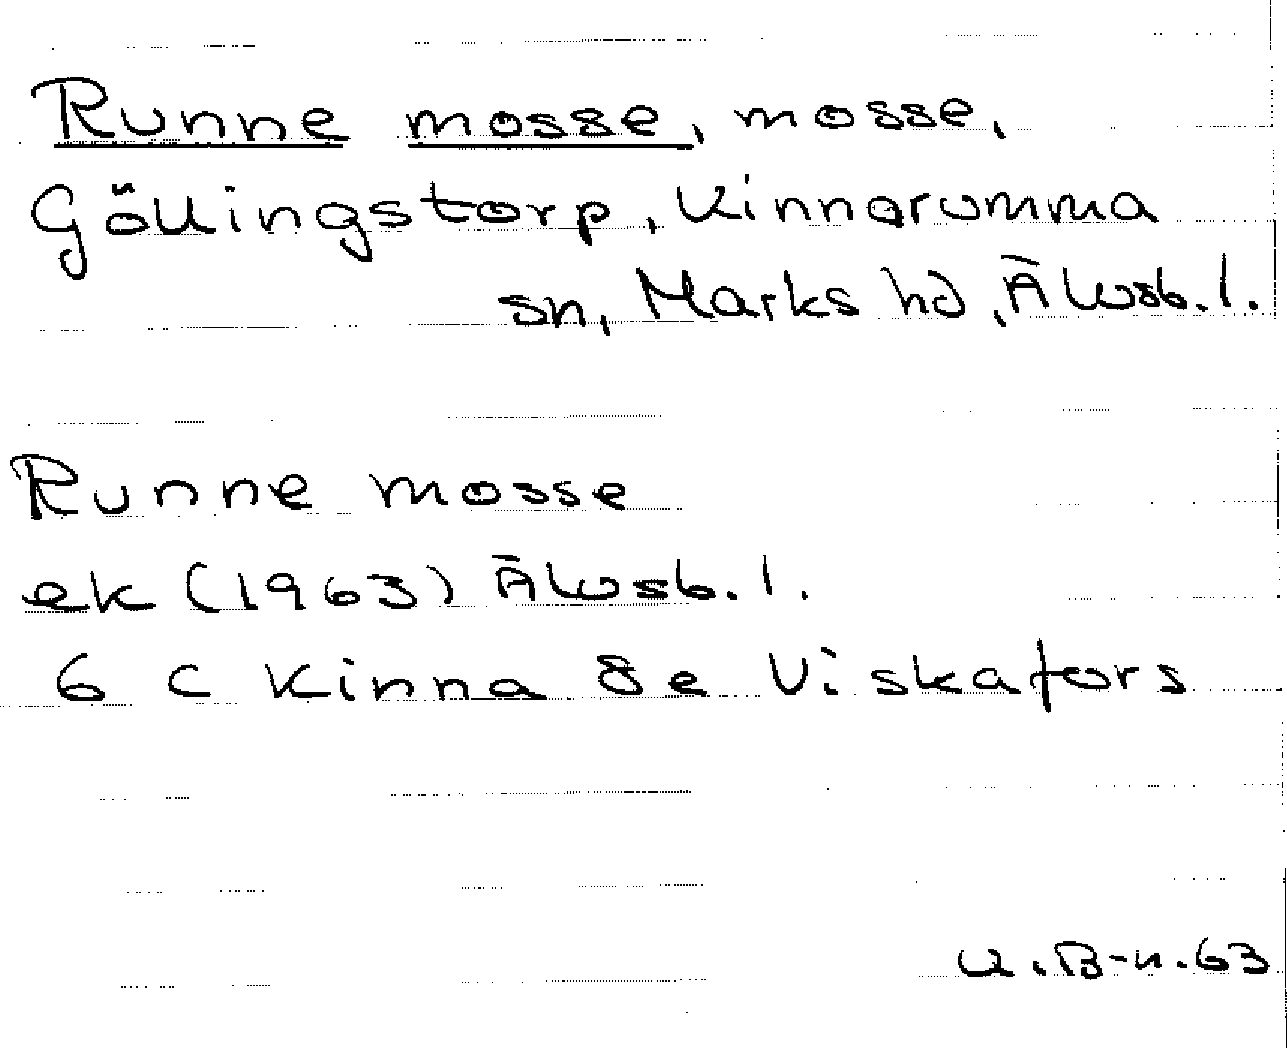 Runne mosse, mosse,
Göllingstorp, Kinnarumma
sn, Marks hd, Älvsb. l.
Runne mosse
ek (1963) Älvsb. l.
6 C Kinna 8e Viskafors
B-n. 63